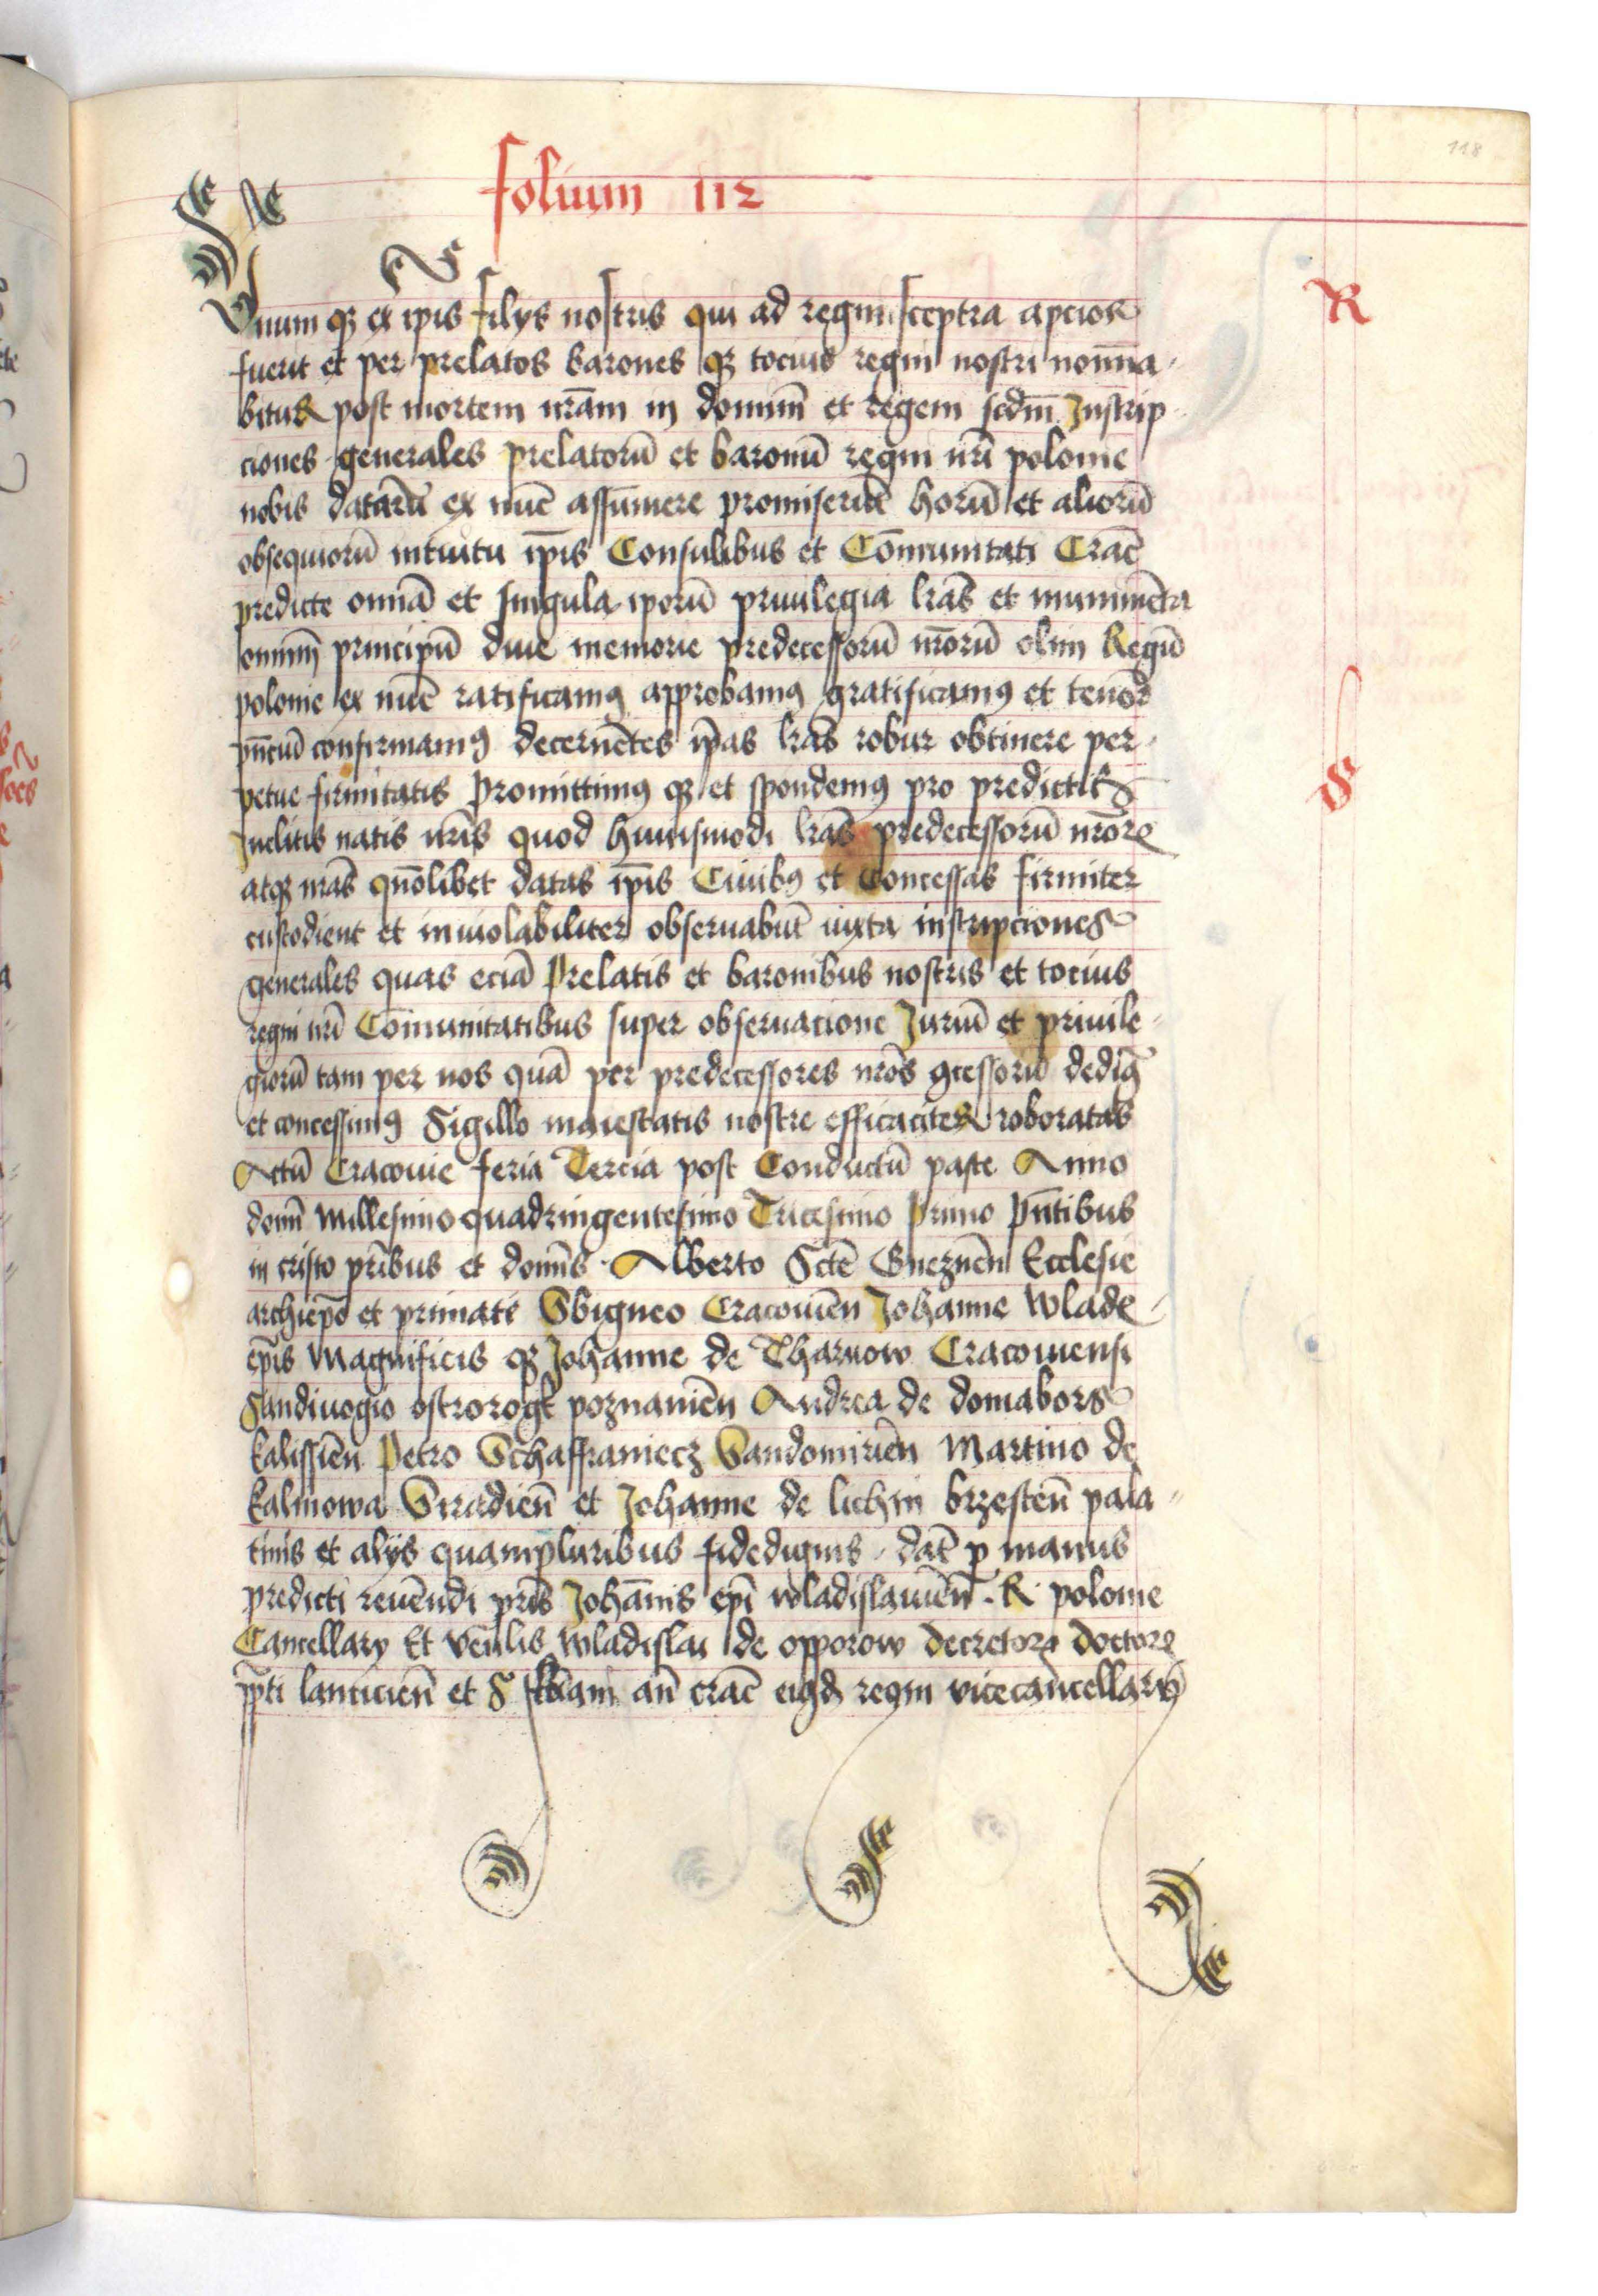 118
folium 112
R
Vnum qꝫ ex ipis filys nostris qui ad regni sceptra apcior
fuerit et per prelatos barones qꝫ tocius regni nostri nom̅na
bitur post mortem nr̅am in dominu̅ et regem scdm̅ Jnscrip
ciones generales prelatoru̅ et baronu̅ regni nr̅i polonie
nobis dataru̅ ex nu̅c assumere promiseru̅t horu̅ et alioru̅
obsequioru̅ intuitu ip̅is Consulibus et Co̅munitati Crac̅
predicte omnia̅ et singula iporu̅ priuilegia lr̅as et munime̅ta
omniu̅ principu̅ diue memorie predecessoru̅ nr̅oru̅ olim Regu̅
polonie ex nu̅c ratificamꝰ approbamꝰ gratificamꝰ et tenor̅
pn̅cium confirmamꝰ decerne̅tes ip̅as lr̅as robur obtinere per
petue firmitatis Promittimꝰ qꝫ et spondemꝰ pro predictis
S
Jnclitis natis nr̅is quod huiusmodi lr̅as predecessoru̅ nr̅oꝝ
atqꝫ nr̅as quo̅libet datas ip̅is Ciuibꝰ et Concessas firmiter
custodient et inuiolabiliter obseruabu̅t iuxta inscripciones
generales quas ecia̅ Prelatis et baronibus nostris et tocius
regni nr̅i Co̅munitatibus super obseruacione Juriu̅ et priuile
gioru̅ tam per nos qua̅ per predecessores nr̅os ꝯcessoru̅ dedimꝰ
et concessimꝰ Sigillo maiestatis nostre efficaciter roboratas
Actu̅ Cracouie feria Tercia post Conductu̅ pasce Anno
domi̅ Millesimo quadringentesimo Tricesimo Primo Pn̅tibus
in cristo pr̅ibus et domi̅s Alberto Sc̅te Gnezne̅n Ecclesie
archiepo̅ et primate Sbigneo Cracouie̅n Johanne Wlade
ep̅is Magnificis qꝫ Johanne de Tharnow Cracouiensi
Sandiuogio ostrorogk poznanie̅n Andrea de domabors
kalissie̅n Petro Schaffraniecz Sandomirie̅n Martino de
kalinowa Siradien̅ et Johanne de lichin brzesten̅ pala
tinis et alijs quampluribus fidedignis dat̅ ꝑ manus
predicti reue̅ndi pr̅is Joha̅nis ep̅i wladislauien̅ R polonie
Cancellary Et ven̅lis wladislai de opporow decretoꝝ doctoꝝ
pp̅ti lancicien̅ et S floriani an̅ crac̅ eiꝰdꝫ regni vicecancellarij